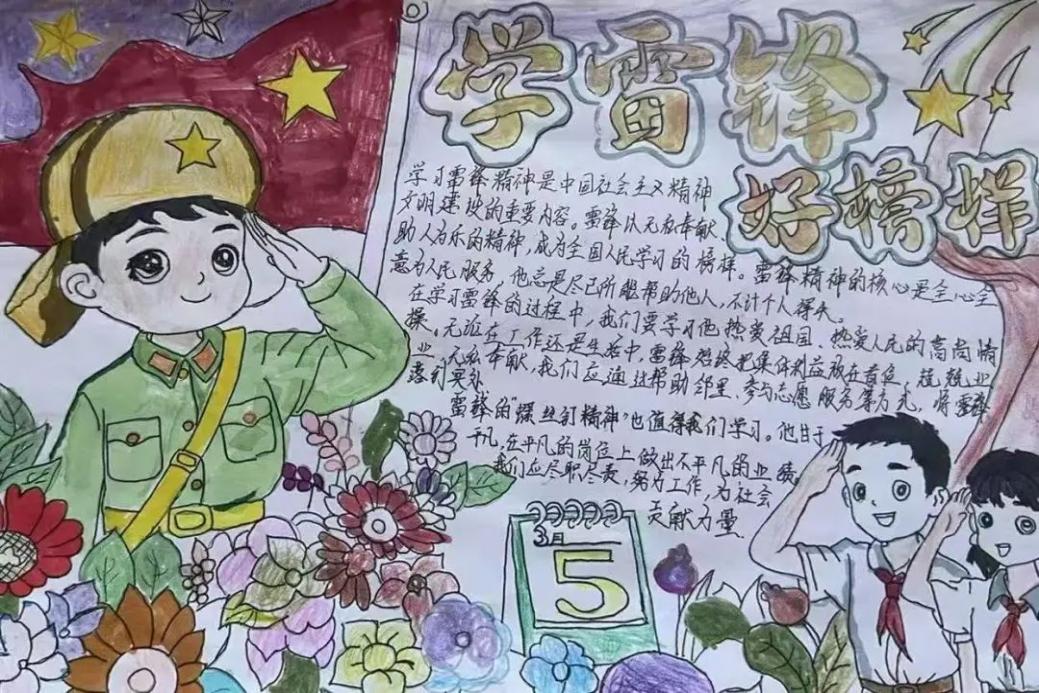 学雷锋
好榜样
学习雷锋精神是中国社会主义精神
文明建设的重要内容。雷锋以无私奉献、
助人为乐的精神,成为全国人民学习的榜样。雷锋精神的核心是全心全
意为人民服务,他总是尽己所能帮助他人,不计个人得失。
在学习雷锋的过程中,我们要学习他热爱祖国、热爱人民的高尚情
操。无论在工作还是生活中,雷锋始终把集体利益放在首位,兢兢业
业、无私奉献,我们应通过帮助邻里、参与志愿服务等方式,将雷锋
落到实处
雷锋的"螺丝钉精神"也值得我们学习。他甘于
平凡,在平凡的岗位上做出不平凡的业绩
我们应尽职尽责,努力工作,为社会
贡献力量
3月
5